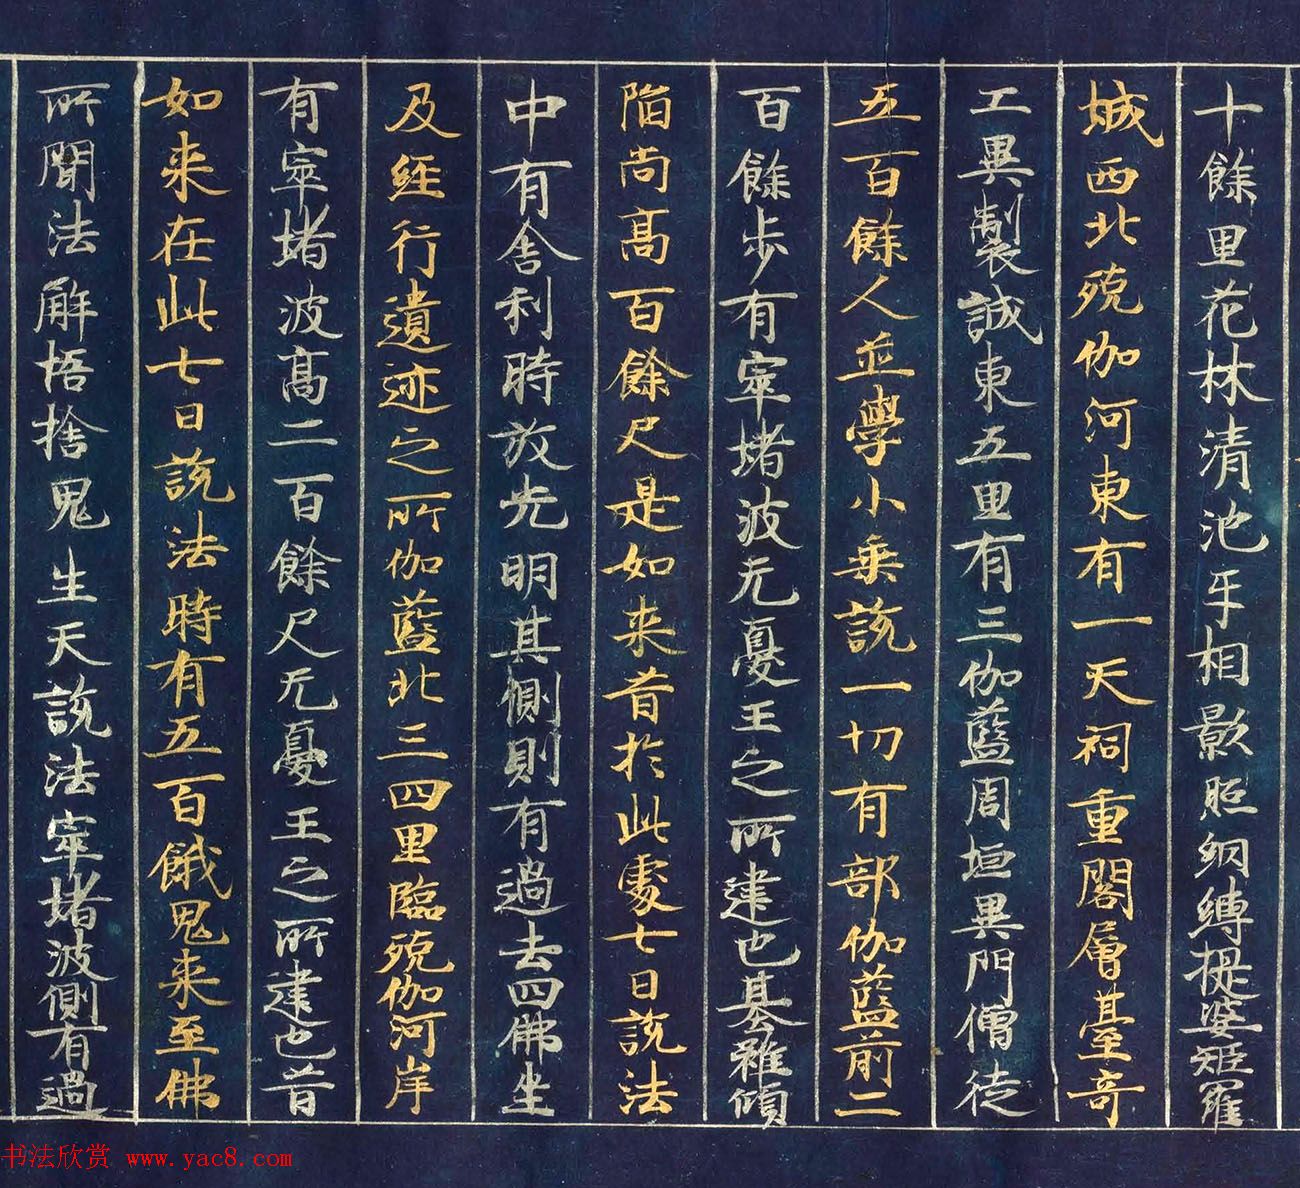 十餘里花林清池牙相影照納縛提婆矩羅
城西北殑伽河東有一天祠重閣層臺奇
工異製誠東五里有三伽藍周垣異門僧徒
五百餘人並學小乗說一切有部伽藍前二
百餘步有窣堵波无憂王之所建也基雖傾
陷尚髙百餘尺是如来昔於此處七日說法
中有舍利時放光明其側則有過去四佛坐
及經行遺迹之所伽藍北三四里臨殑伽河岸
有窣堵波髙二百餘尺无憂王之所建也昔
如来在此七日說法時有五百餓鬼来至佛
所聞法解悟捨鬼生天說法窣堵波側有過
书法欣赏 www.yac8.com